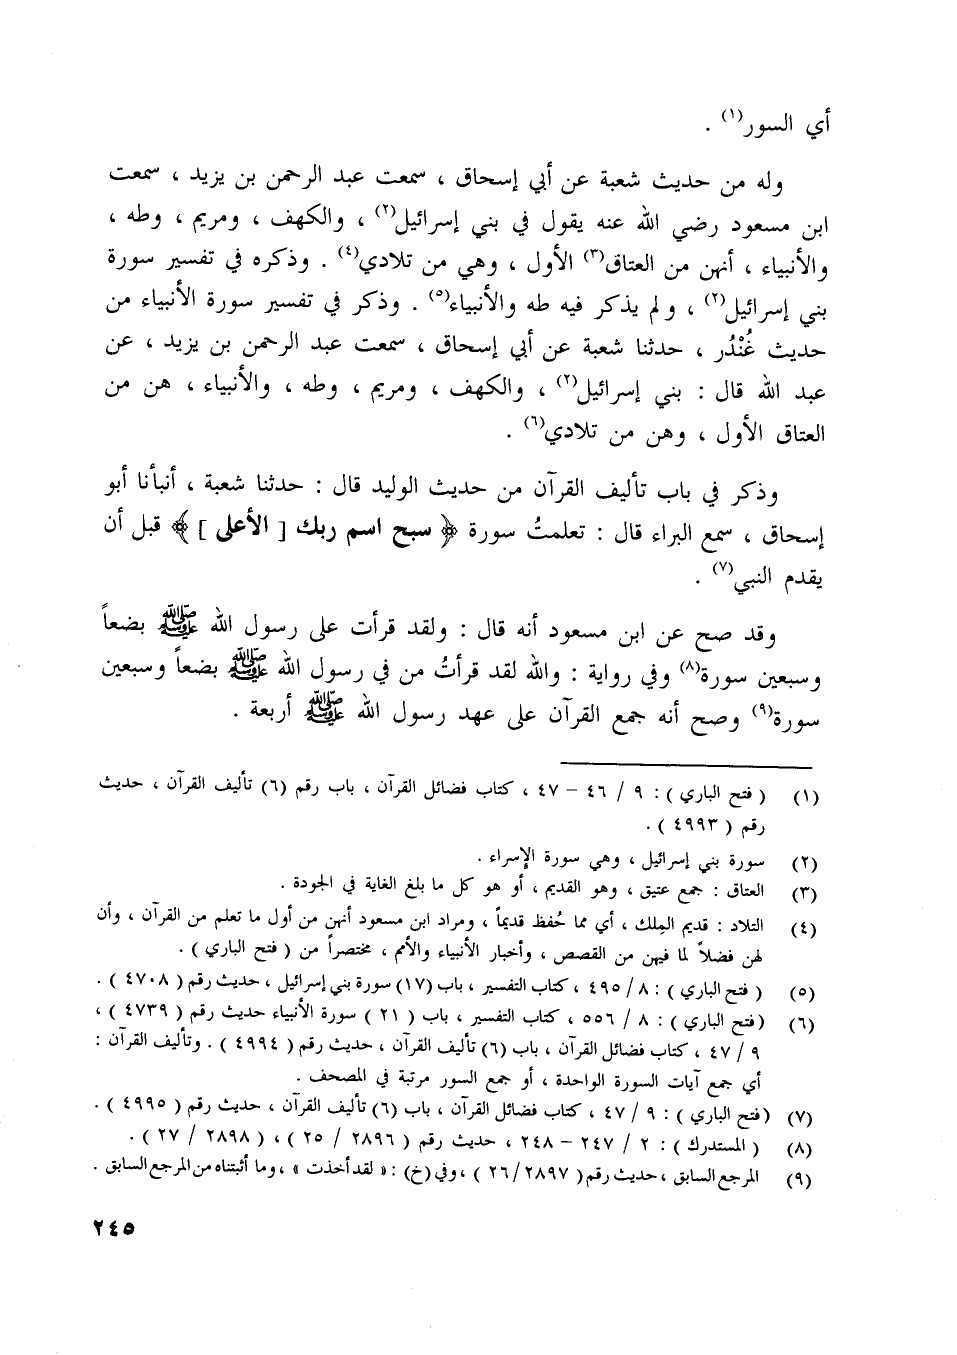 أي السور(١) .
وله من حديث شعبة عن أبي إسحاق ، سمعت عبد الرحمن بن يزيد ، سمعت
ابن مسعود رضي الله عنه يقول في بني إسرائيل(٢) ، والكهف ، ومريم ، وطه ،
والأنبياء ، أنهن من العتاق(٣) الأول ، وهي من تلادي(٤) . وذكره في تفسير سورة
بني إسرائيل(٢) ، ولم يذكر فيه طه والأنبياء(٥) . وذكر في تفسير سورة الأنبياء من
حديث غُنْدُر ، حدثنا شعبة عن أبي إسحاق ، سمعت عبد الرحمن بن يزيد ، عن
عبد الله قال : بني إسرائيل(٢) ، والكهف ، ومريم ، وطه ، والأنبياء ، هن من
العتاق الأول ، وهن من تلادي(٦) .
وذكر في باب تأليف القرآن من حديث الوليد قال : حدثنا شعبة ، أنبأنا أبو
إسحاق ، سمع البراء قال : تعلمتُ سورة ﴿ سبح اسم ربك [ الأعلى ] ﴾ قبل أن
يقدم النبي(٧) .
وقد صح عن ابن مسعود أنه قال : ولقد قرأت على رسول الله ﷺ بضعاً
وسبعين سورة(٨) وفي رواية : والله لقد قرأتُ من في رسول الله ﷺ بضعاً وسبعين
سورة(٩) وصح أنه جمع القرآن على عهد رسول الله ﷺ أربعة .
(١) ( فتح الباري ) : ٩ / ٤٦ – ٤٧ ، كتاب فضائل القرآن ، باب رقم (٦) تأليف القرآن ، حديث
رقم ( ٤٩٩٣ ) .
(٢) سورة بني إسرائيل ، وهي سورة الإسراء .
(٣) العتاق : جمع عتيق ، وهو القديم ، أو هو كل ما بلغ الغاية في الجودة .
(٤) التلاد : قديم المِلك ، أي مما حُفظ قديماً ، ومراد ابن مسعود أنهن من أول ما تعلم من القرآن ، وأن
لهن فضلاً لما فيهن من القصص ، وأخبار الأنبياء والأمم ، مختصراً من ( فتح الباري ) .
(٥) ( فتح الباري ) : ٨ / ٤٩٥ ، كتاب التفسير ، باب (١٧) سورة بني إسرائيل ، حديث رقم ( ٤٧٠٨ ) .
(٦) (فتح الباري ) : ٨ / ٥٥٦ ، كتاب التفسير ، باب ( ٢١ ) سورة الأنبياء حديث رقم ( ٤٧٣٩ ) ،
٩ / ٤٧ ، كتاب فضائل القرآن ، باب (٦) تأليف القرآن ، حديث رقم ( ٤٩٩٤ ) . وتأليف القرآن :
أي جمع آيات السورة الواحدة ، أو جمع السور مرتبة في المصحف .
(٧) (فتح الباري ) : ٩ / ٤٧ ، كتاب فضائل القرآن ، باب (٦) تأليف القرآن ، حديث رقم ( ٤٩٩٥ ) .
(٨) ( المستدرك ) : ٢ / ٢٤٧ – ٢٤٨ ، حديث رقم ( ٢٨٩٦ / ٢٥ ) ، ( ٢٨٩٨ / ٢٧ ) .
(٩) المرجع السابق ، حديث رقم ( ٢٨٩٧ / ٢٦ ) ، وفي (خ) : « لقد أخذت » ، وما أثبتناه من المرجع السابق .
٢٤٥